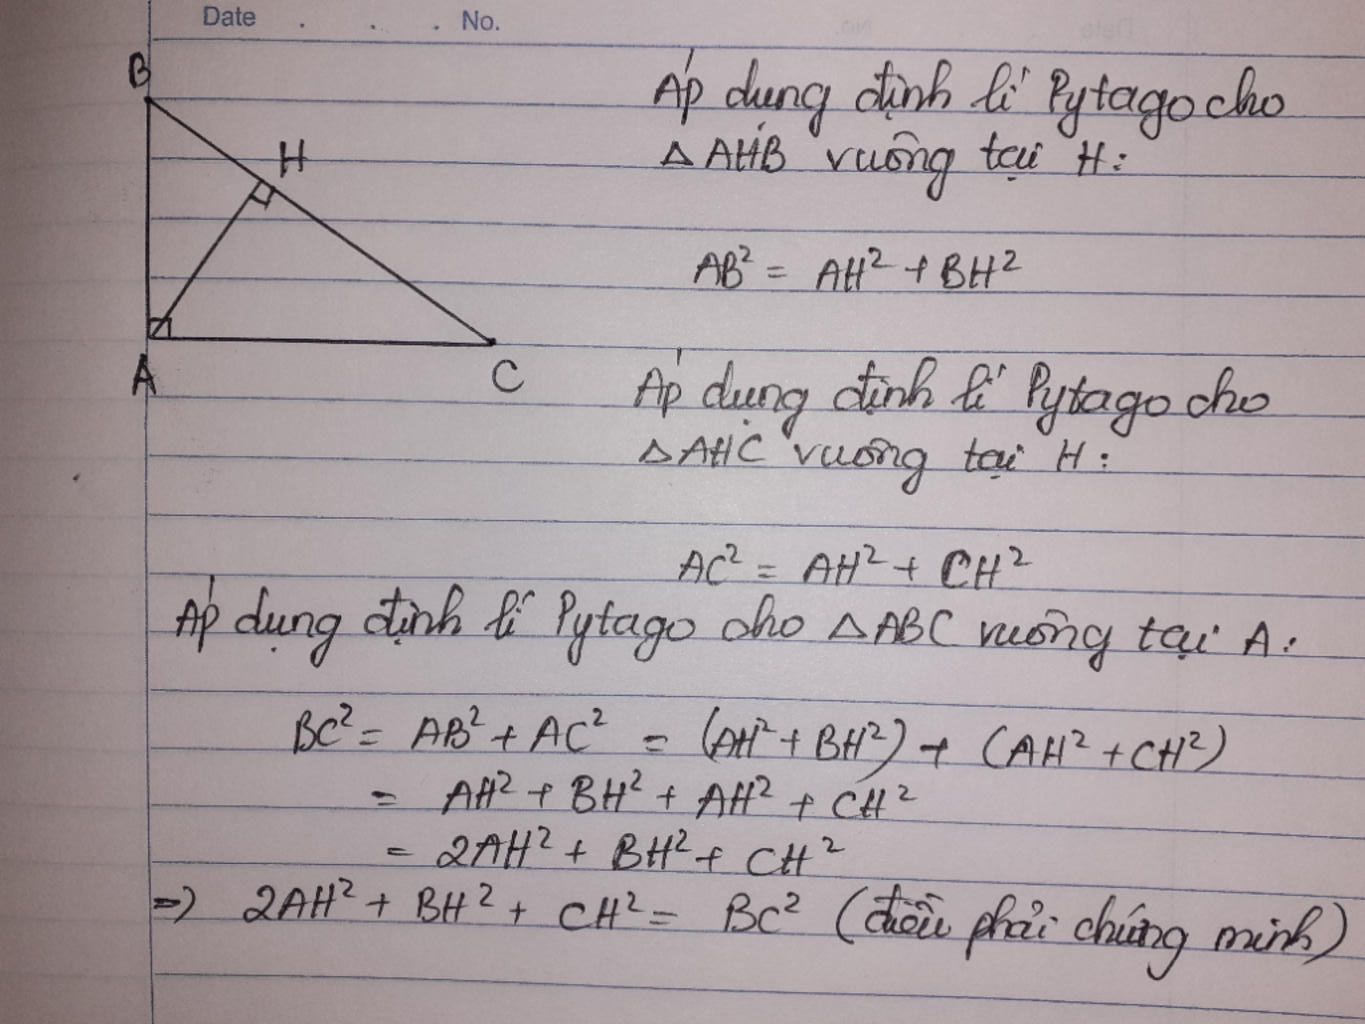 Date . . . No.
B
H
A
C
Áp dụng định lí Pytago cho
△AHB vuông tại H:
AB² = AH² + BH²
Áp dụng định lí Pytago cho
△AHC vuông tại H:
AC² = AH² + CH²
Áp dụng định lí Pytago cho △ABC vuông tại A:
BC² = AB² + AC² = (AH² + BH²) + (AH² + CH²)
= AH² + BH² + AH² + CH²
= 2AH² + BH² + CH²
=> 2AH² + BH² + CH² = BC² (điều phải chứng minh)